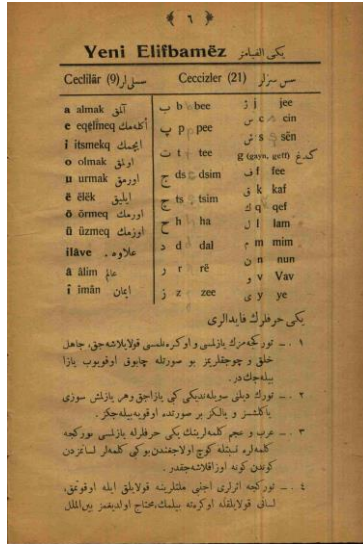 ٦
Yeni Elifbamëz یکی الفبامز
Ceclilär (9) سسلیلر Ceccizler (21) سس سزلر
a almak آلمق
e eqëlmeq اکلمك
i itsmekq ایچمك
o olmak اولمق
u urmak اورمق
ë ëlëk ایلیق
ö örmeq اورمك
ü üzmeq اوزمك
ilâve علاوه .
â âlim عالم
î îmân ایمان
ب b bee
پ p pee
ت t tee
ج ds dsim
چ ts tsim
ح h ha
د d dal
ر r rë
ز z zee
ژ j jee
س c cin
ش s sën
g (gayn, geff) گ غ
ف f fee
ق k kaf
ك q qef
ل l lam
م m mim
ن n nun
و v Vav
ی y ye
یکی حرفلرك فایدالری
١ . — تورکجه‌مزك یازلمسی و اوکره‌نلمسی قولایلاشه‌جق، جاهل
خلق و چوجقلریمز بو صورتله چابوق اوقویوب یازا
بیله‌جکدر.
٢ . — تورك دیلی سویله‌ندیکی کبی یازاجق وهر یازلمش سوزی
یاکلشسز و یالکز بر صورتده اوقویه‌بیله‌جکز.
٣ . — عرب و عجم کلمه‌لرینك یکی حرفلرله یازلمسی تورکجه
کلمه‌لره نسبتله کوچ اولاجغندن بوکی کلمه‌لر لسانمزدن
کوندن کونه اوزاقلاشه‌جقدر.
٤ . — تورکجه اثرلری اجنبی ملتلرینه قولایلق ایله اوقوتمق،
لسانی قولایلقله اوکره‌ته بیلمك، محتاج اولدیغمز بین‌الملل